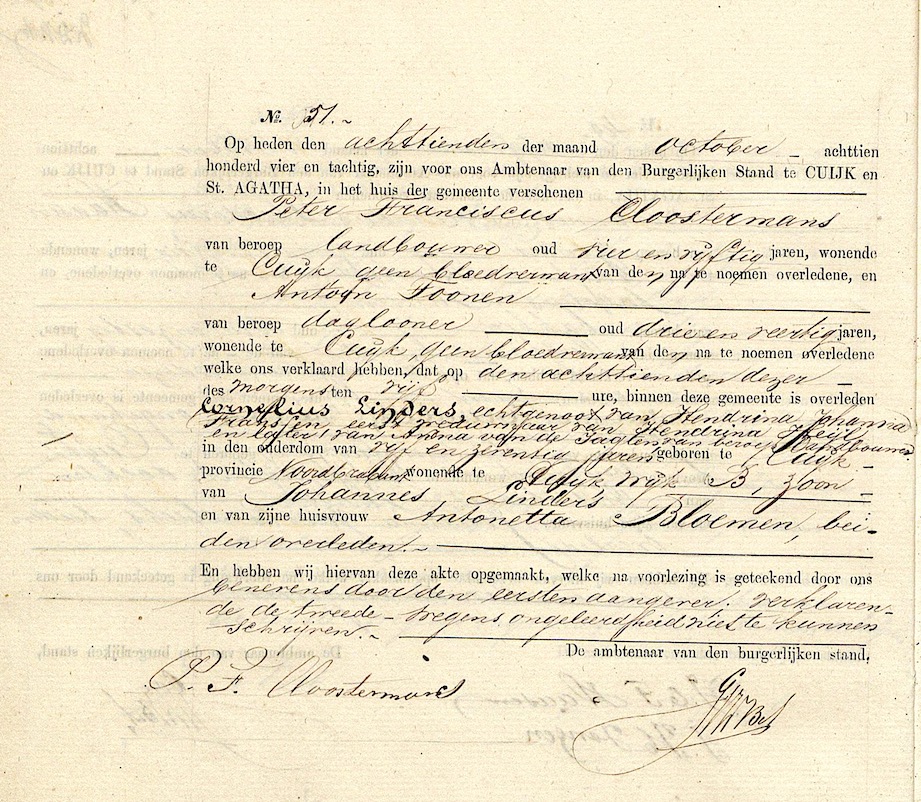 No. 51.
Op heden den achttienden der maand october achttien
honderd vier en tachtig, zijn voor ons Ambtenaar van den Burgerlijken Stand te CUIJK en
St. AGATHA, in het huis der gemeente verschenen
Peter Franciscus Cloostermans
van beroep landbouwer oud vier en vijftig jaren, wonende
te Cuijk, geen bloedverwant van den na te noemen overledene, en
Antoon Toonen
van beroep daglooner oud drie en veertig jaren,
wonende te Cuijk, geen bloedverwant van den na te noemen overledene
welke ons verklaard hebben, dat op den achttienden dezer
des morgens ten vijf ure, binnen deze gemeente is overleden
Cornelius Linders, echtgenoot van Hendrina Johanna
Franssen eerst weduwnaar van Hendrina
en later van Anna van de van beroep landbouwer
in den ouderdom van vijf en zeventig jaren geboren te Cuijk
provincie Noordbrabant wonende te Cuijk Wijk B, zoon
van Johannes Linders
en van zijne huisvrouw Antonetta Bloemen, bei-
den overleden.
En hebben wij hiervan deze akte opgemaakt, welke na voorlezing is geteekend door ons
benevens door den eersten aangever, verklaren-
de de tweede wegens ongeleerdheid niet te kunnen
schrijven.
De ambtenaar van den burgerlijken stand,
P. F. Cloostermans